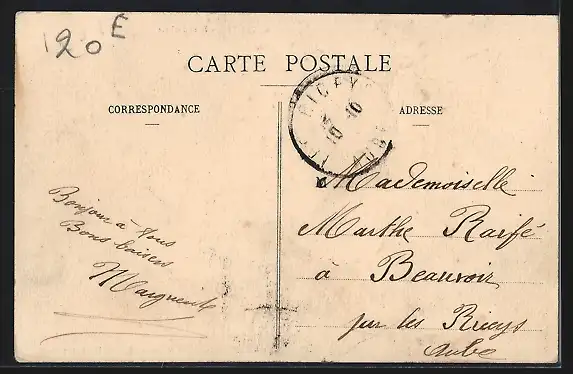 120E
CARTE POSTALE
CORRESPONDANCE
ADRESSE
RICEYS
10 -10
AUBE
Bonjour à tous
Bons baisers
Marguerite
Mademoiselle
Marthe Rarfé
à Beauvoir
par les Riceys
Aube